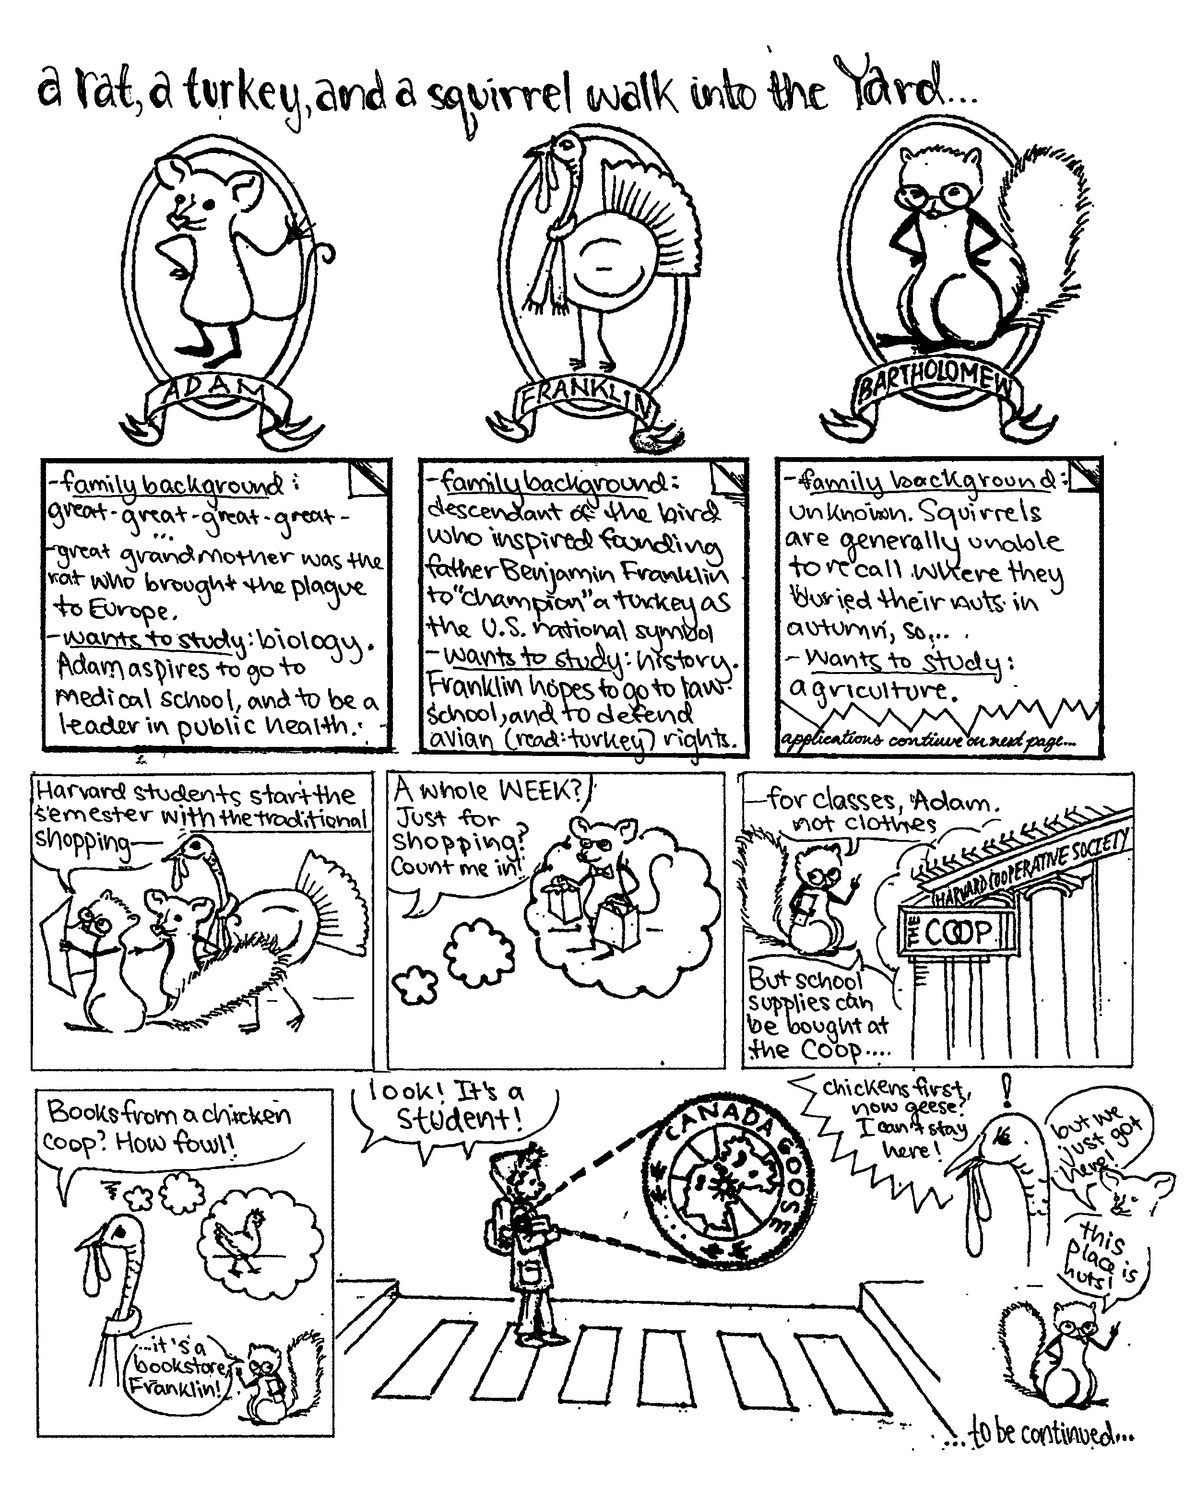 a rat, a turkey, and a squirrel walk into the Yard...
ADAM
FRANKLIN
BARTHOLOMEW
-family background:
great-great-great-great-
...
-great grandmother was the
rat who brought the plague
to Europe.
-wants to study: biology.
Adam aspires to go to
medical school, and to be a
leader in public health.
-family background:
descendant of the bird
who inspired founding
father Benjamin Franklin
to "champion" a turkey as
the U.S. national symbol
-wants to study: history.
Franklin hopes to go to law
school, and to defend
avian (read: turkey) rights.
-family background:
unknown. Squirrels
are generally unable
to recall where they
buried their nuts in
autumn, so...
-wants to study:
agriculture.
applications continue on next page...
Harvard students start the
semester with the traditional
shopping—
A whole WEEK?
Just for
shopping?
Count me in!
—for classes, Adam.
not clothes
HARVARD COOPERATIVE SOCIETY
THE COOP
But school
supplies can
be bought at
the Coop....
Books from a chicken
coop? How fowl!
...it's a
bookstore,
Franklin!
look! It's a
student!
CANADA GOOSE
chickens first,
now geese?
I can't stay
here!
!
but we
just got
here!
this
place is
nuts!
... to be continued...